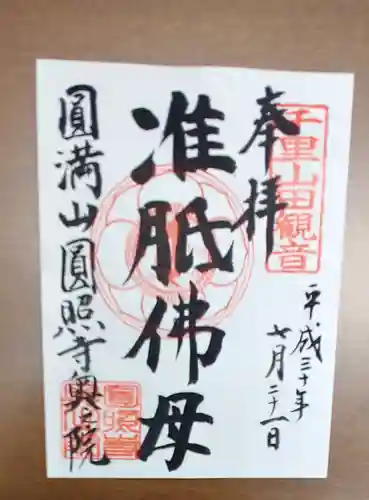 奉拝
千里山田観音
平成三十年
七月二十一日
准胝佛母
圓満山圓照寺奥之院